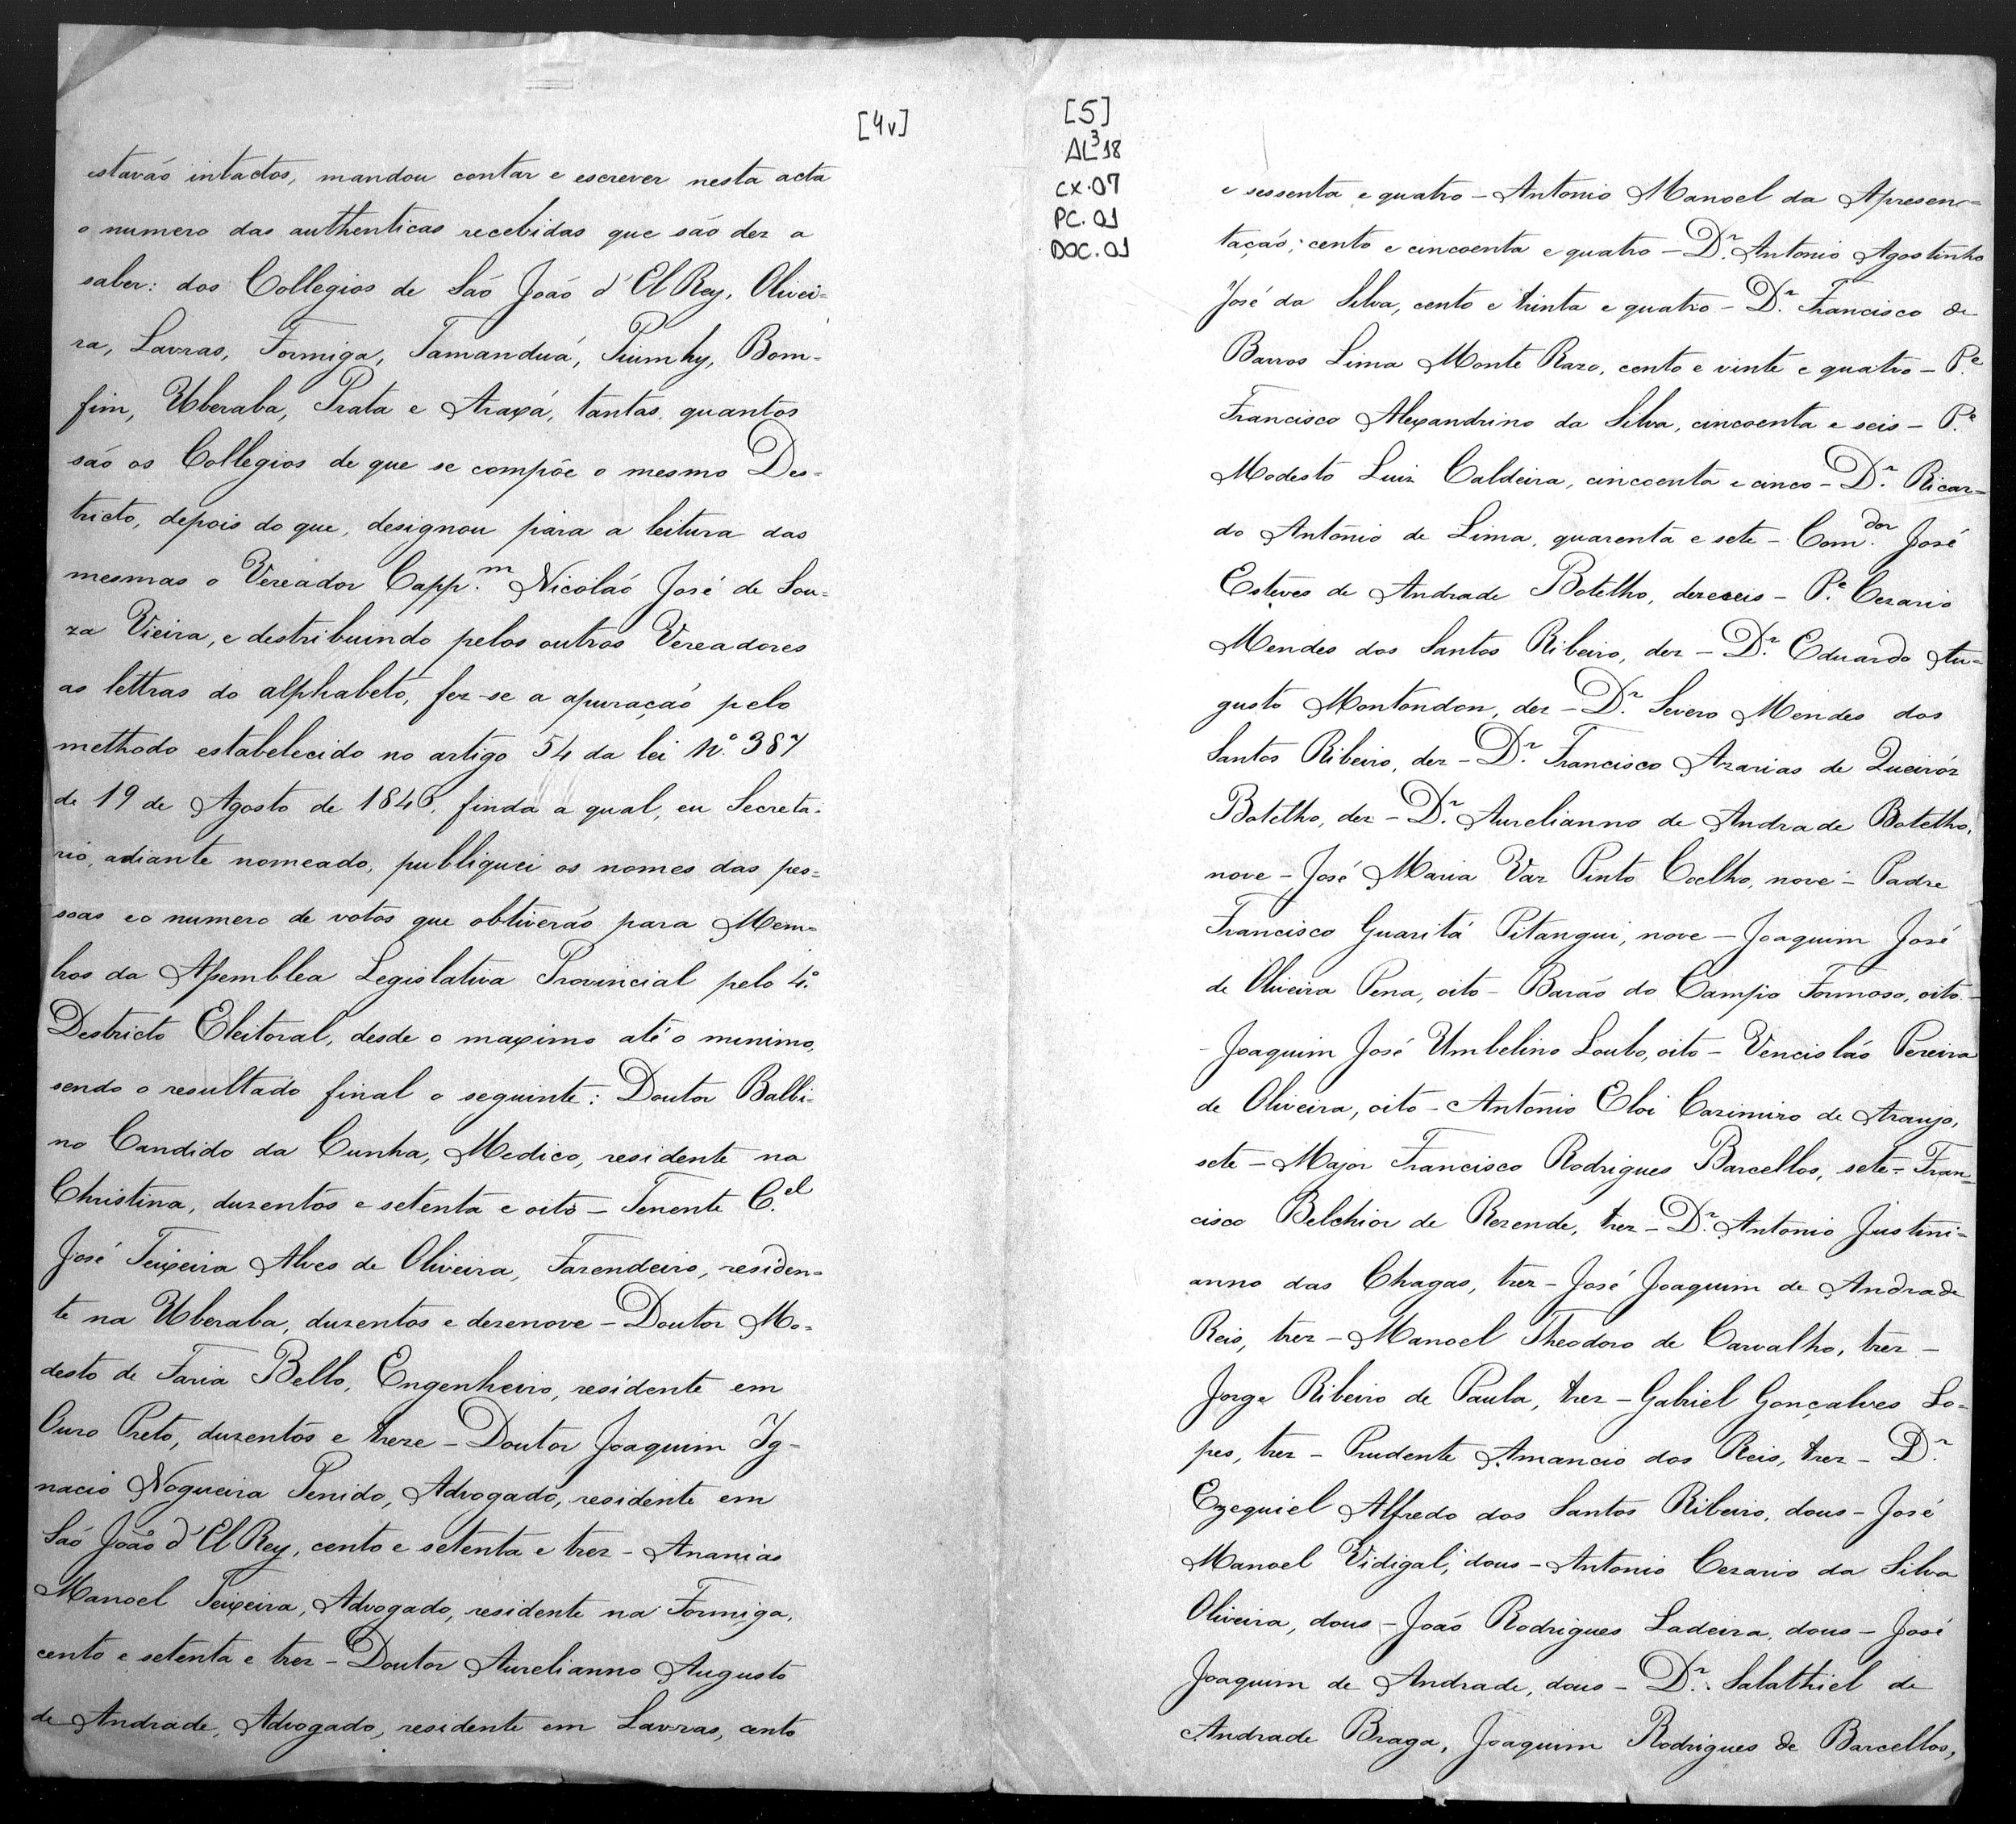 [4v]
estavão intactos, mandou contar e escrever nesta acta
o numero das authenticas recebidas que são dez a
saber: dos Collegios de São João d'El Rey, Olivei=
ra, Lavras, Formiga, Tamanduá, Piumhy, Bom=
fim, Uberaba, Prata e Araxá, tantas quantos
são os Collegios de que se compõe o mesmo Des=
tricto, depois do que, designou para a leitura das
mesmas o Vereador Capp.m Nicoláo José de Sou=
za Vieira, e destribuindo pelos outros Vereadores
as lettras do alphabeto, fez-se a apuração pelo
methodo estabelecido no artigo 54 da lei Nº. 387
de 19 de Agosto de 1846, finda a qual, eu Secreta=
rio, adiante nomeado, publiquei os nomes das pes=
soas e o numero de votos que obtiverão para Mem=
bros da Assemblea Legislativa Provincial pelo 4º.
Destricto Eleitoral, desde o maximo até o minimo,
sendo o resultado final o seguinte: Doutor Balbi=
no Candido da Cunha, Medico, residente na
Christina, duzentos e setenta e oito - Tenente C.el
José Teixeira Alves de Oliveira, Fazendeiro, residen=
te na Uberaba, duzentos e dezenove - Doutor Mo=
desto de Faria Bello, Engenheiro, residente em
Ouro Preto, duzentos e treze - Doutor Joaquim Ig=
nacio Nogueira Penido, Advogado, residente em
São João d'El Rey, cento e setenta e trez - Ananias
Manoel Teixeira, Advogado, residente na Formiga,
cento e setenta e trez - Doutor Aurelianno Augusto
de Andrade, Advogado, residente em Lavras, cento
[5]
AL³18
CX.07
PC.01
DOC.01
e sessenta e quatro - Antonio Manoel da Apresen=
tação, cento e cincoenta e quatro - D.r Antonio Agostinho
José da Silva, cento e trinta e quatro - D.r Francisco de
Barros Lima Monte Razo, cento e vinte e quatro - P.e
Francisco Alexandrino da Silva, cincoenta e seis - P.e
Modesto Luiz Caldeira, cincoenta e cinco - D.r Ricar=
do Antonio de Lima, quarenta e sete - Com.dor José
Esteves de Andrade Botelho, dezeseis - P.e Cezario
Mendes dos Santos Ribeiro, dez - D.r Eduardo Au=
gusto Montandon, dez - D.r Severo Mendes dos
Santos Ribeiro, dez - D.r Francisco Azarias de Queiróz
Botelho, dez - D.r Aurelianno de Andrade Botelho,
nove - José Maria Vaz Pinto Coelho, nove - Padre
Francisco Guaritá Pitangui, nove - Joaquim José
de Oliveira Pena, oito - Barão do Campo Formoso, oito -
- Joaquim José Umbelino Loubo, oito - Vencisláo Pereira
de Oliveira, oito - Antonio Eloi Cazimiro de Araujo,
sete - Major Francisco Rodrigues Barcellos, sete - Fran=
cisco Belchior de Rezende, trez - D.r Antonio Justini=
anno das Chagas, trez - José Joaquim de Andrade
Reis, trez - Manoel Theodoro de Carvalho, trez -
Jorge Ribeiro de Paula, trez - Gabriel Gonçalves Lo=
pes, trez - Prudente Amancio dos Reis, trez - D.r
Ezequiel Alfredo dos Santos Ribeiro, dous - José
Manoel Vidigal, dous - Antonio Cezario da Silva
Oliveira, dous - João Rodrigues Ladeira, dous - José
Joaquim de Andrade, dous - D.r Salathiel de
Andrade Braga, Joaquim Rodrigues de Barcellos,